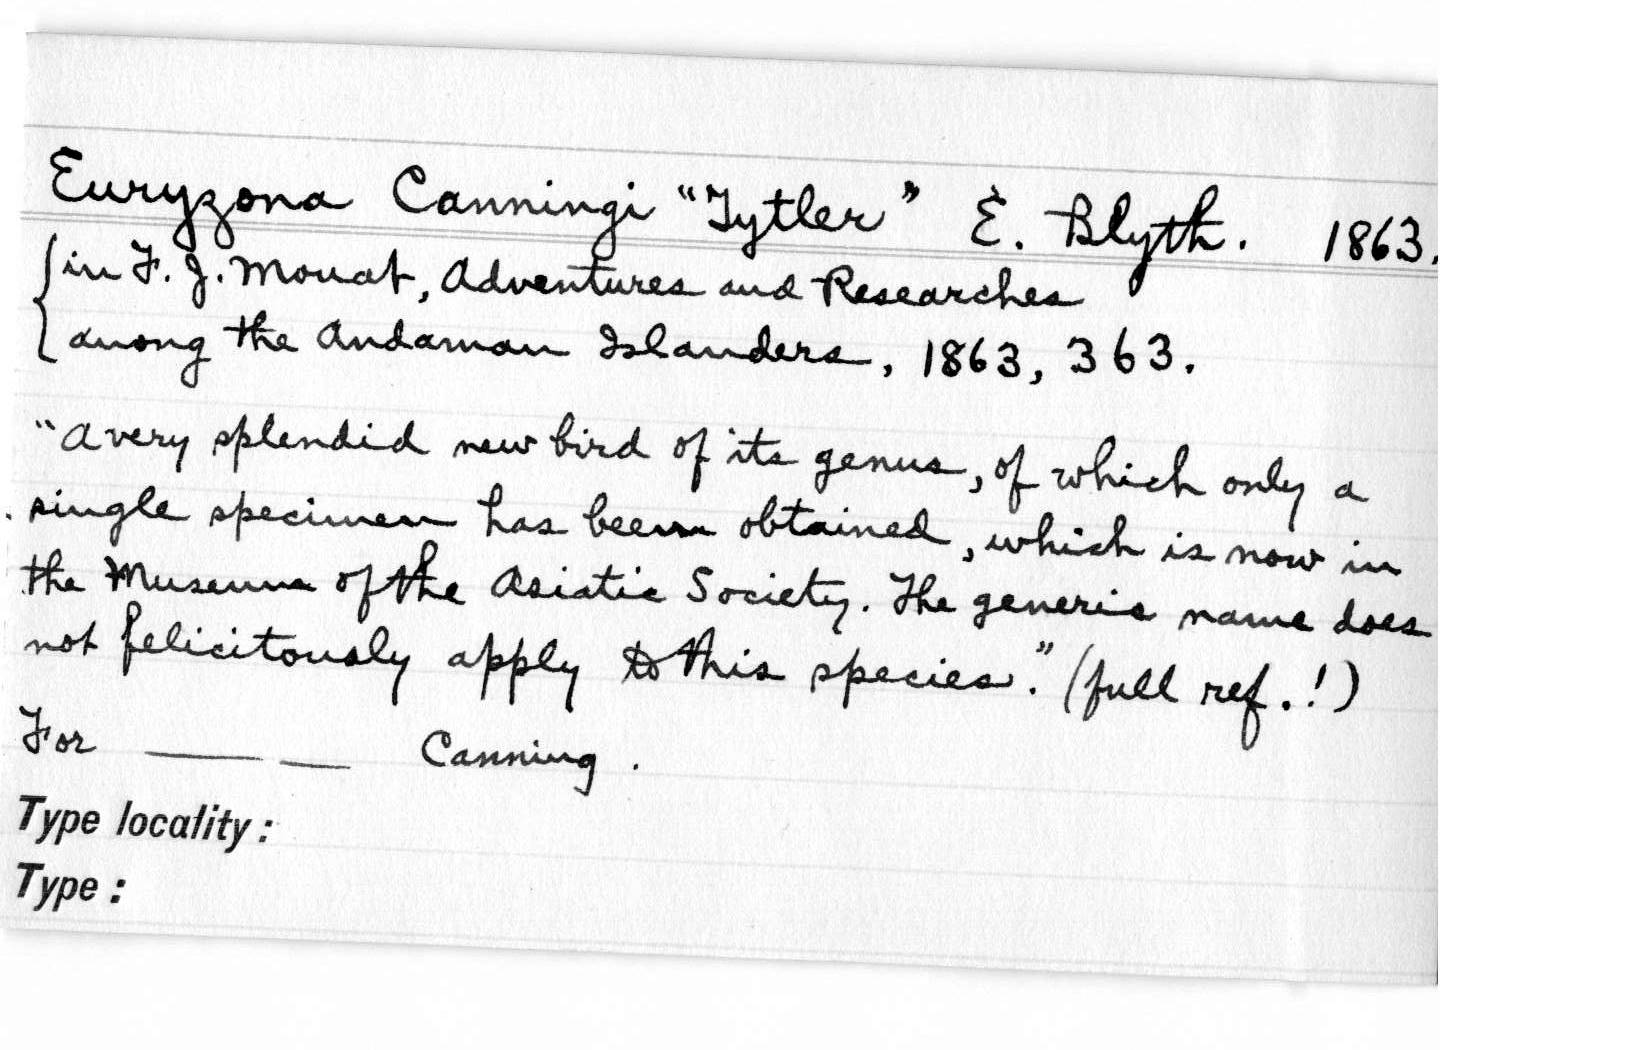 Euryzona Canningi "Tytler" E. Blyth. 1863.
in F. J. Mouat, Adventures and Researches
among the Andaman Islanders, 1863, 363.
"A very splendid new bird of its genus, of which only a
single specimen has been obtained, which is now in
the Museum of the Asiatic Society. The generic name does
not felicitously apply to this species." (full ref.!)
For ____ __ Canning.
Type locality:
Type: